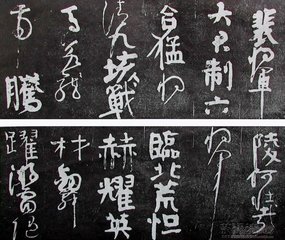 裴将軍
大君制六
合猛将
清九垓戰
馬若龍
虎騰
陵何壯哉
将軍
臨北荒恒
赫耀英
材劍舞
躍游雷随